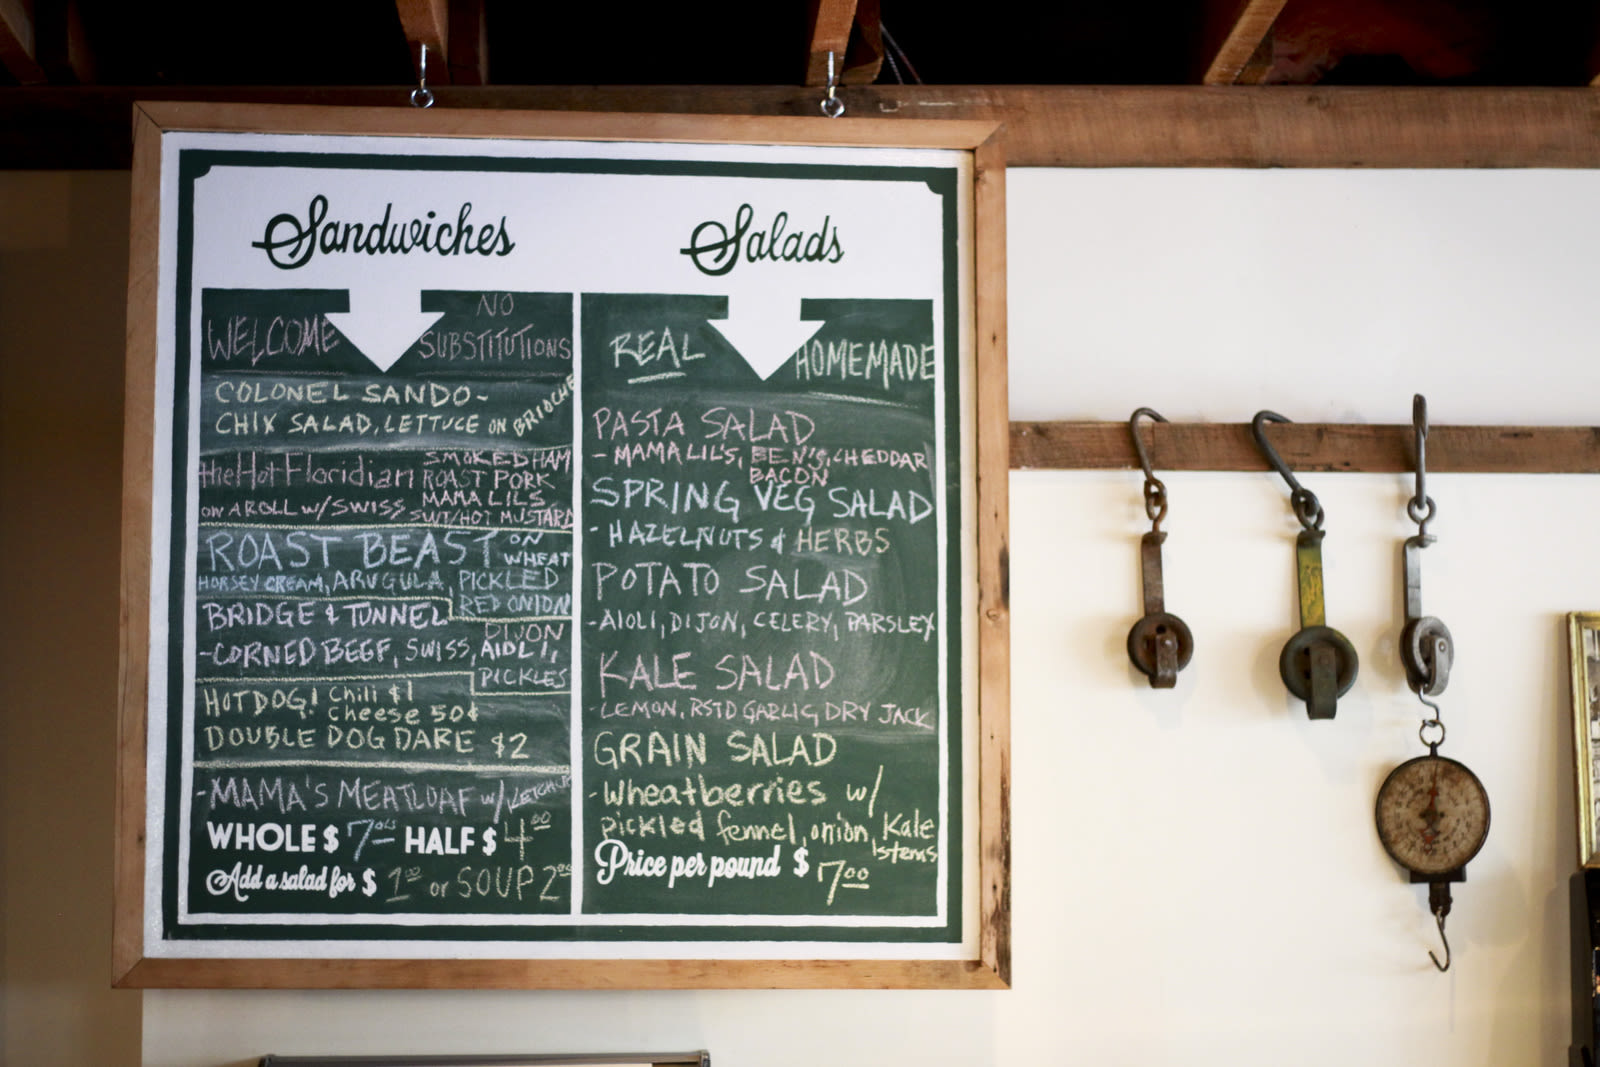 Sandwiches
WELCOME
NO
SUBSTITUTIONS
COLONEL SANDO-
CHIX SALAD, LETTUCE ON BRIOCHE
the Hot Floridian
SMOKED HAM
ROAST PORK
MAMA LILS
ON A ROLL w/ SWISS SWT/HOT MUSTARD
ROAST BEAST ON WHEAT
HORSEY CREAM, ARUGULA, PICKLED
RED ONION
BRIDGE & TUNNEL
-CORNED BEEF, SWISS, DIJON
AIOLI,
PICKLES
HOTDOG! Chili $1
Cheese 50¢
DOUBLE DOG DARE $2
-MAMA'S MEATLOAF w/ KETCHUP
WHOLE $ 7.00 HALF $ 4.00
Add a salad for $ 1.00 or SOUP 2.00
Salads
REAL HOMEMADE
PASTA SALAD
- MAMA LIL'S, BEN'S, CHEDDAR
BACON
SPRING VEG SALAD
- HAZELNUTS & HERBS
POTATO SALAD
-AIOLI, DIJON, CELERY, PARSLEY
KALE SALAD
-LEMON, RSTD GARLIC, DRY JACK
GRAIN SALAD
-Wheatberries w/
pickled fennel, onion, Kale
stems
Price per pound $ 7.00